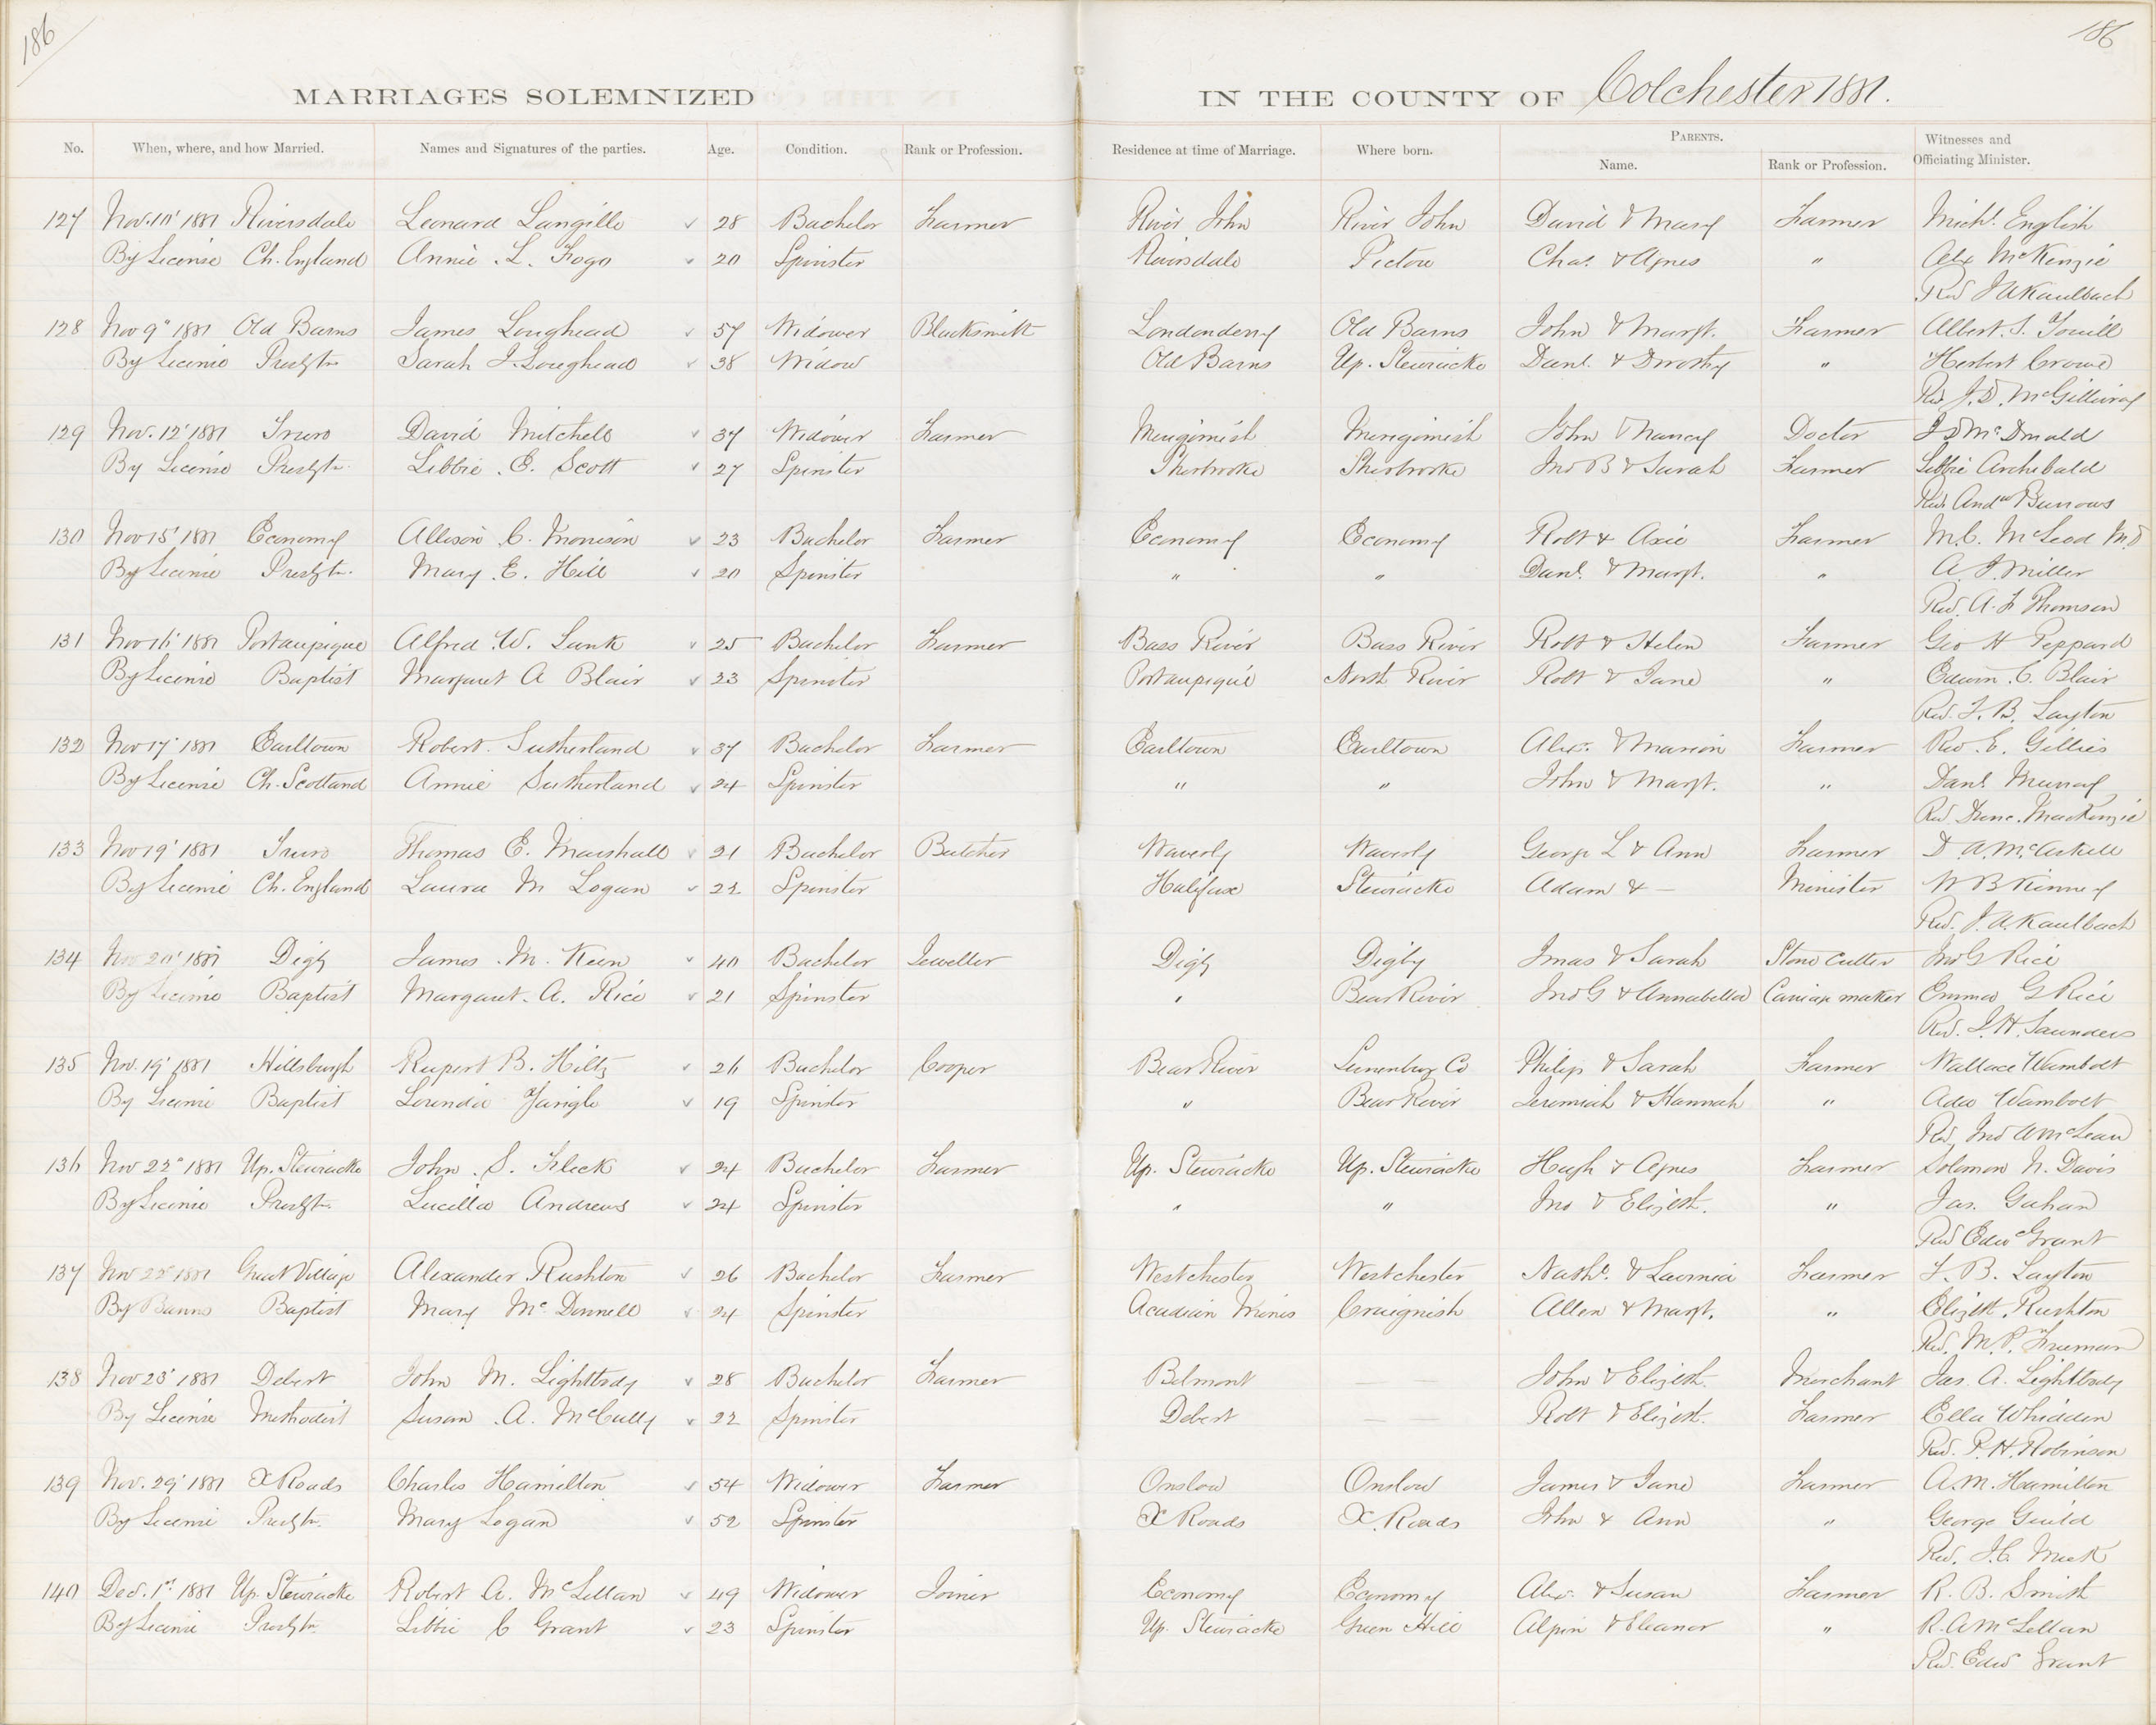 186
186
MARRIAGES SOLEMNIZED IN THE COUNTY OF Colchester 1881.
No. When, where, and how Married. Names and Signatures of the parties. Age. Condition. Rank or Profession. Residence at time of Marriage. Where born. PARENTS. Name. Rank or Profession. Witnesses and Officiating Minister.
127 Nov. 10' 1881 Riversdale Leonard Langille 28 Bachelor Farmer River John River John David & Mary Farmer Michl. English
By License Ch. England Annie L. Fogo 20 Spinster Riversdale Pictou Chas. & Agnes " Alex McKenzie
Rev J A Kaulbach
128 Nov 9" 1881 Old Barns James Loughead 57 Widower Blacksmith Londonderry Old Barns John & Margt. Farmer Albert S.
By License Presbytn Sarah J. Loughead 38 Widow Old Barns Up. Stewiacke Danl. & Dorothy " Herbert Crowe
Rev J. D. McGillivray
129 Nov. 12' 1881 Truro David Mitchell 37 Widower Farmer Merigomish Merigomish John & Nancy Doctor J D McDonald
By License Presbytn. Libbie E. Scott 27 Spinster Sherbrooke Sherbrooke Jno B & Sarah Farmer Libbie Archibald
Rev. Andw Burrows
130 Nov 15' 1881 Economy Allison C. Morrison 23 Bachelor Farmer Economy Economy Robt & Axie Farmer M. C. McLeod M.D
By License Presbytn. Mary E. Hill 20 Spinster " " Danl. & Margt. " A. J. Miller
Rev. A. F Thomson
131 Nov 16' 1881 Portaupique Alfred W. Lank 25 Bachelor Farmer Bass River Bass River Robt & Helen Farmer Geo H Peppard
By License Baptist Margaret A Blair 23 Spinster Portaupique North River Robt & Jane " Edwin C. Blair
Rev. F. B. Layton
132 Nov 17' 1881 Earltown Robert Sutherland 37 Bachelor Farmer Earltown Earltown Alex. & Marion Farmer Rev. E. Gillies
By License Ch. Scotland Annie Sutherland 24 Spinster " " John & Margt. " Danl. Murray
Rev Dunc. MacKenzie
133 Nov 19' 1881 Truro Thomas E. Marshall 21 Bachelor Butcher Waverly Waverly George L & Ann Farmer D. A. McAskill
By License Ch. England Laura M Logan 22 Spinster Halifax Stewiacke Adam & — Minister W B Kinney
Rev. J. A. Kaulbach
134 Nov 20' 1881 Digby James M. Keen 40 Bachelor Jeweller Digby Digby Jmas & Sarah Stone Cutter Jno G Rice
By License Baptist Margaret. A. Rice 21 Spinster " Bear River Jno G & Annabella Carriage maker Emma G Rice
Rev. J. H. Saunders
135 Nov. 19' 1881 Hillsburgh Rupert B. Hiltz 26 Bachelor Cooper Bear River Lunenburg Co Philip & Sarah Farmer Wallace Wambolt
By License Baptist Lorinda Yarigle 19 Spinster " Bear River Jeremiah & Hannah " Ada Wambolt
Rev. Jno A McLean
136 Nov 22" 1881 Up. Stewiacke John S. Fleck 24 Bachelor Farmer Up. Stewiacke Up. Stewiacke Hugh & Agnes Farmer Solomon N. Davis
By License Presbytn. Lucilla Andrews 24 Spinster " " Jno & Elizbth. " Jas. Gahan
Rev Edwd Grant
137 Nov 22' 1881 Great Village Alexander Rushton 26 Bachelor Farmer Westchester Westchester Nathl. & Lavinia Farmer F. B. Layton
By Banns Baptist Mary McDonnell 24 Spinster Acadian Mines Craignish Allen & Margt. " Elizbth. Rushton
Rev. M. P. Freeman
138 Nov 23' 1881 Debert John M. Lightbody 28 Bachelor Farmer Belmont — — John & Elizbth. Merchant Jas. A. Lightbody
By License Methodist Susan A. McCully 22 Spinster Debert — Robt & Elizbth. Farmer Ella Whidden
Rev. P. H. Robinson
139 Nov. 29' 1881 X Roads Charles Hamilton 54 Widower Farmer Onslow Onslow James & Jane Farmer A. M. Hamilton
By License Presbytn. Mary Logan 52 Spinster X Roads X. Roads John & Ann " George Guild
Rev. J. C. Meek
140 Dec. 1st 1881 Up. Stewiacke Robert A. McLellan 49 Widower Joiner Economy Economy Alex. & Susan Farmer R. B. Smith
By License Presbytn. Libbie C Grant 23 Spinster Up. Stewiacke Green Hill Alpin & Eleanor " R. A McLellan
Rev. Edwd Grant